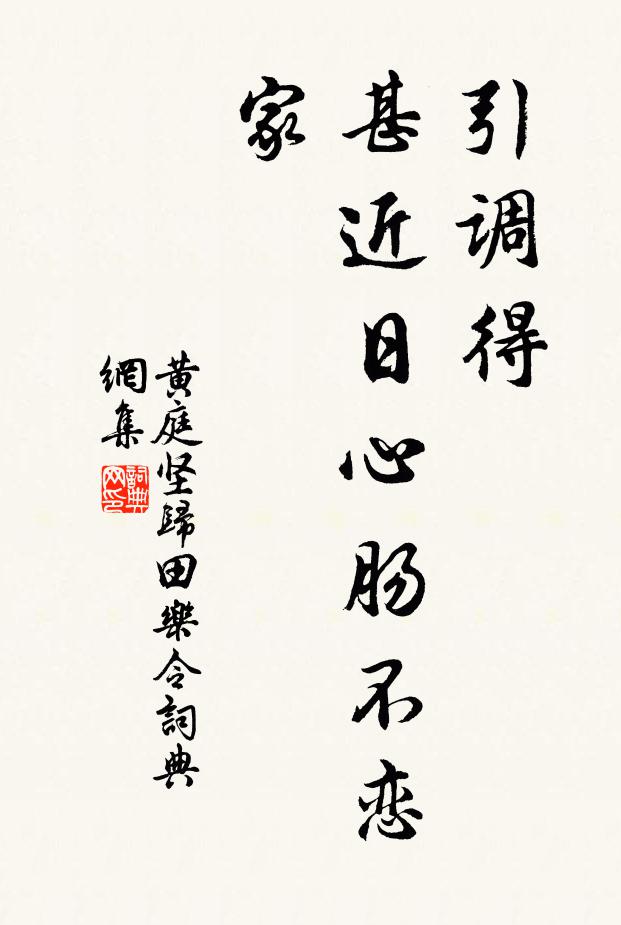 引调得
甚近日心肠不恋
家
黄庭坚歸田樂令詞典
網集
詞典
网印